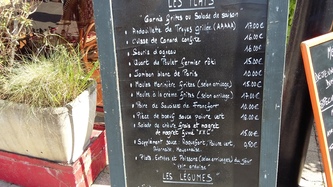 LES PLATS
"Garnis frites ou Salade de saison"
• Andouillette de Troyes grillée (AAAAA) 17.00€
• Cuisse de Canard confite 16.00€
• Souris d'agneau
• Quart de Poulet fermier rôti 15.00€
• Jambon blanc de Paris 10.00€
• Moules Marinière frites (selon arrivage) 15.00€
• Moules à la crème frites (selon arrivage)
• Paire de Saucisses de Francfort 10.00€
• Pièce de boeuf sauce poivre vert 16.00€
• Salade de crudités frais et magret de magret fumé "XXL" 15.00€
• Supplément sauce: Roquefort, Poivre vert,
Béarnaise, Mayonnaise.
• Plats Cuisinés et Poissons (selon arrivages) du jour
"LES LÉGUMES"